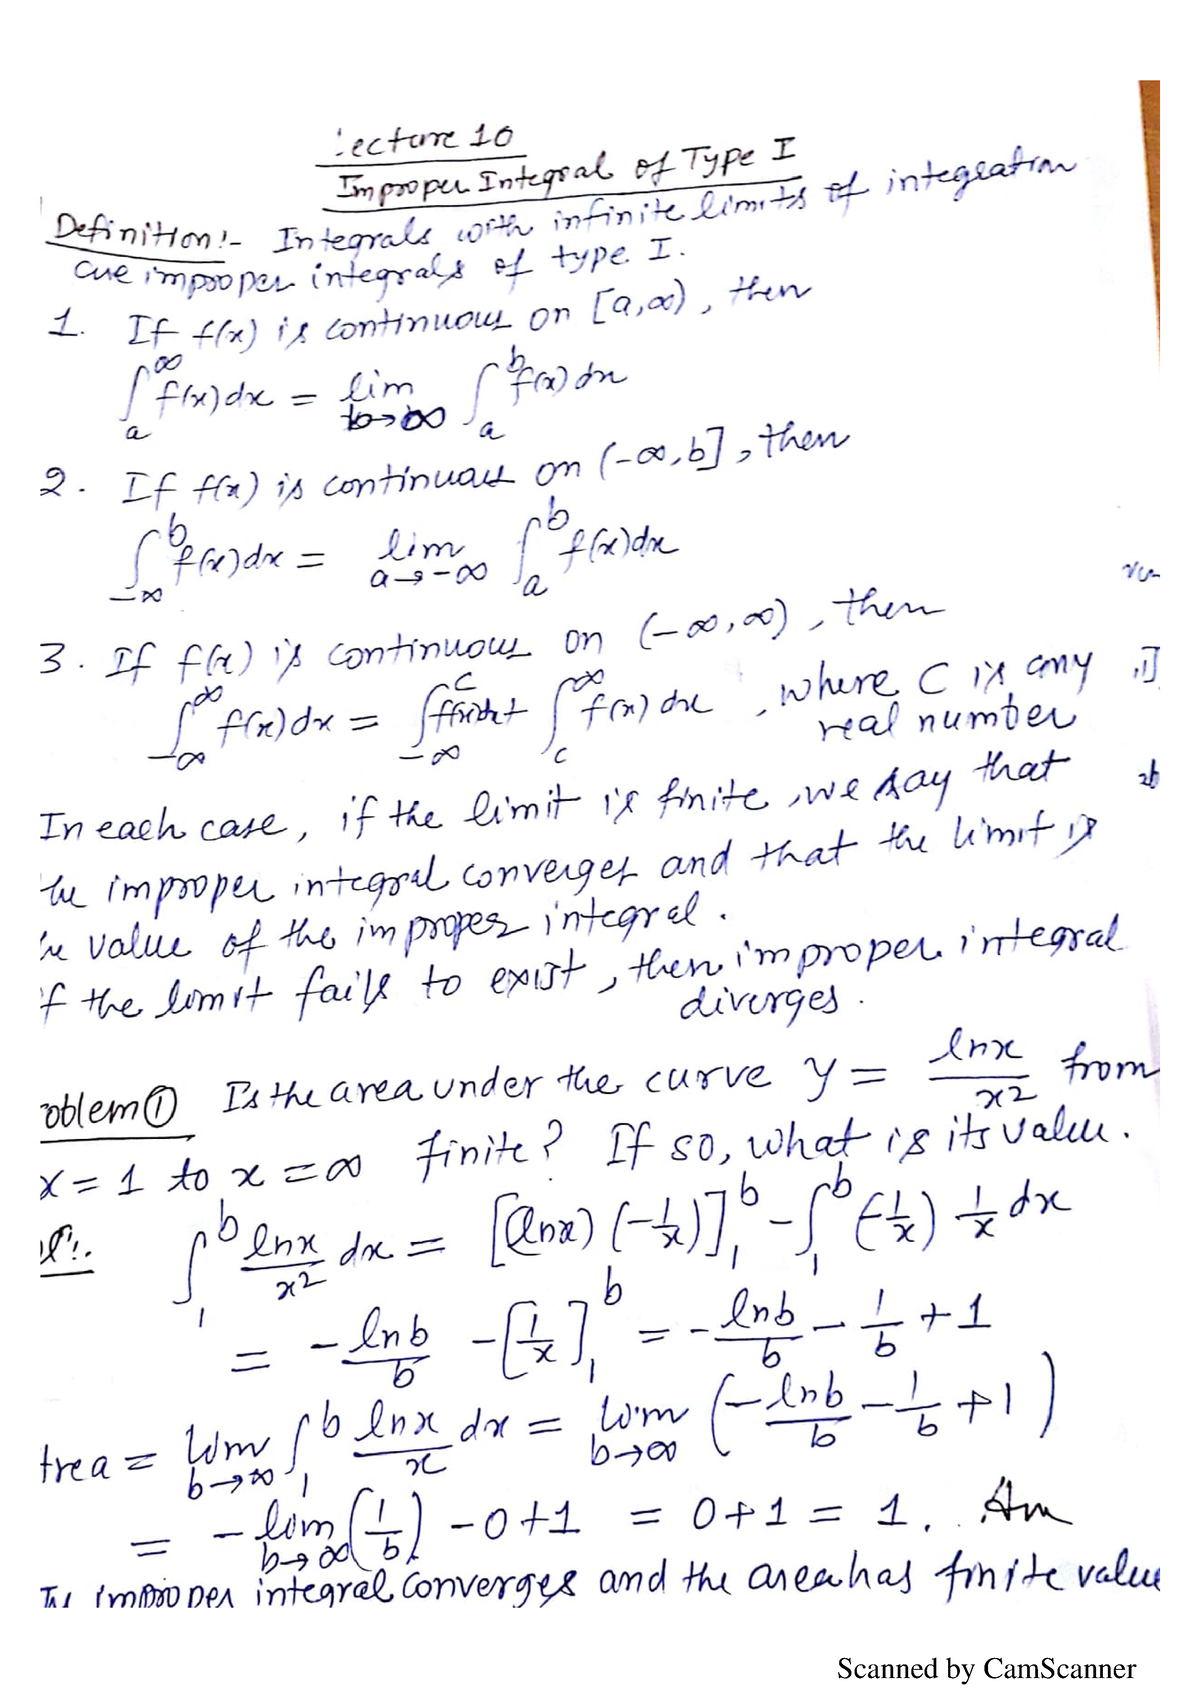 ecture 10
Improper Integral of Type I
Definition:- Integrals with infinite limits of integration
are improper integrals of type I.
1. If f(x) is continuous on [a,∞), then
∫_a^∞ f(x)dx = lim_{b→∞} ∫_a^b f(x) dx
2. If f(x) is continuous on (-∞,b], then
∫_{-∞}^b f(x)dx = lim_{a→-∞} ∫_a^b f(x)dx
3. If f(x) is continuous on (-∞,∞), then
∫_{-∞}^∞ f(x)dx = ∫_{-∞}^c f(x)dx + ∫_c^∞ f(x) dx, where C is any
real number
In each case, if the limit is finite, we say that
the improper integral converges and that the limit is
he value of the improper integral.
if the limit fails to exist, then improper integral
diverges.
oblem ① Is the area under the curve y = lnx/x² from
x = 1 to x = ∞ finite? If so, what is its value.
∫_1^b lnx/x² dx = [(lnx)(-1/x)]_1^b - ∫_1^b (-1/x) 1/x dx
= - lnb/b - [1/x]_1^b = - lnb/b - 1/b + 1
Area = lim_{b→∞} ∫_1^b lnx/x dx = lim_{b→∞} (- lnb/b - 1/b + 1)
= - lim_{b→∞} (1/b) - 0 + 1 = 0 + 1 = 1. Ans
improper integral converges and the area has finite value
Scanned by CamScanner